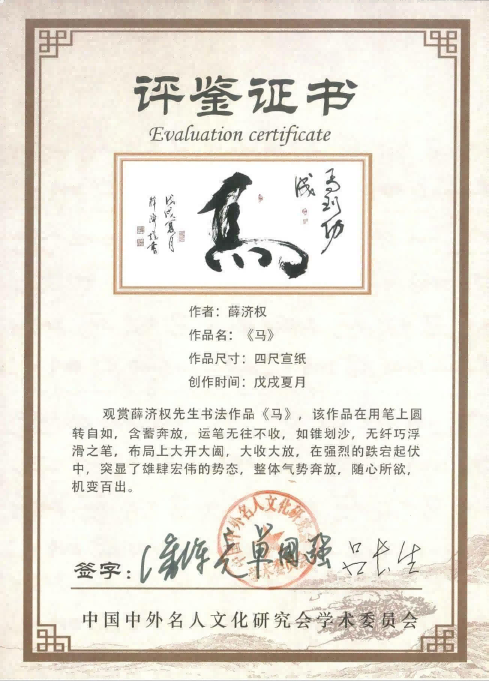 评鉴证书
Evaluation certificate
马到功
成
马
戊戌夏月
薛济权书
作者：薛济权
作品名：《马》
作品尺寸：四尺宣纸
创作时间：戊戌夏月
观赏薛济权先生书法作品《马》，该作品在用笔上圆
转自如，含蓄奔放，运笔无往不收，如锥划沙，无纤巧浮
滑之笔，布局上大开大阖，大收大放，在强烈的跌宕起伏
中，突显了雄肆宏伟的势态，整体气势奔放，随心所欲，
机变百出。
中国中外名人文化研究会
学术委员会
签字：
单国强
吕长生
中国中外名人文化研究会学术委员会